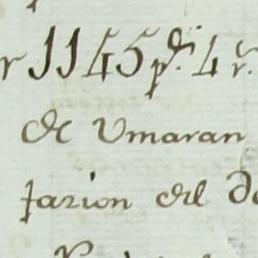 r 1145 p.s 4 r.
de Vmaran
tazion del Do